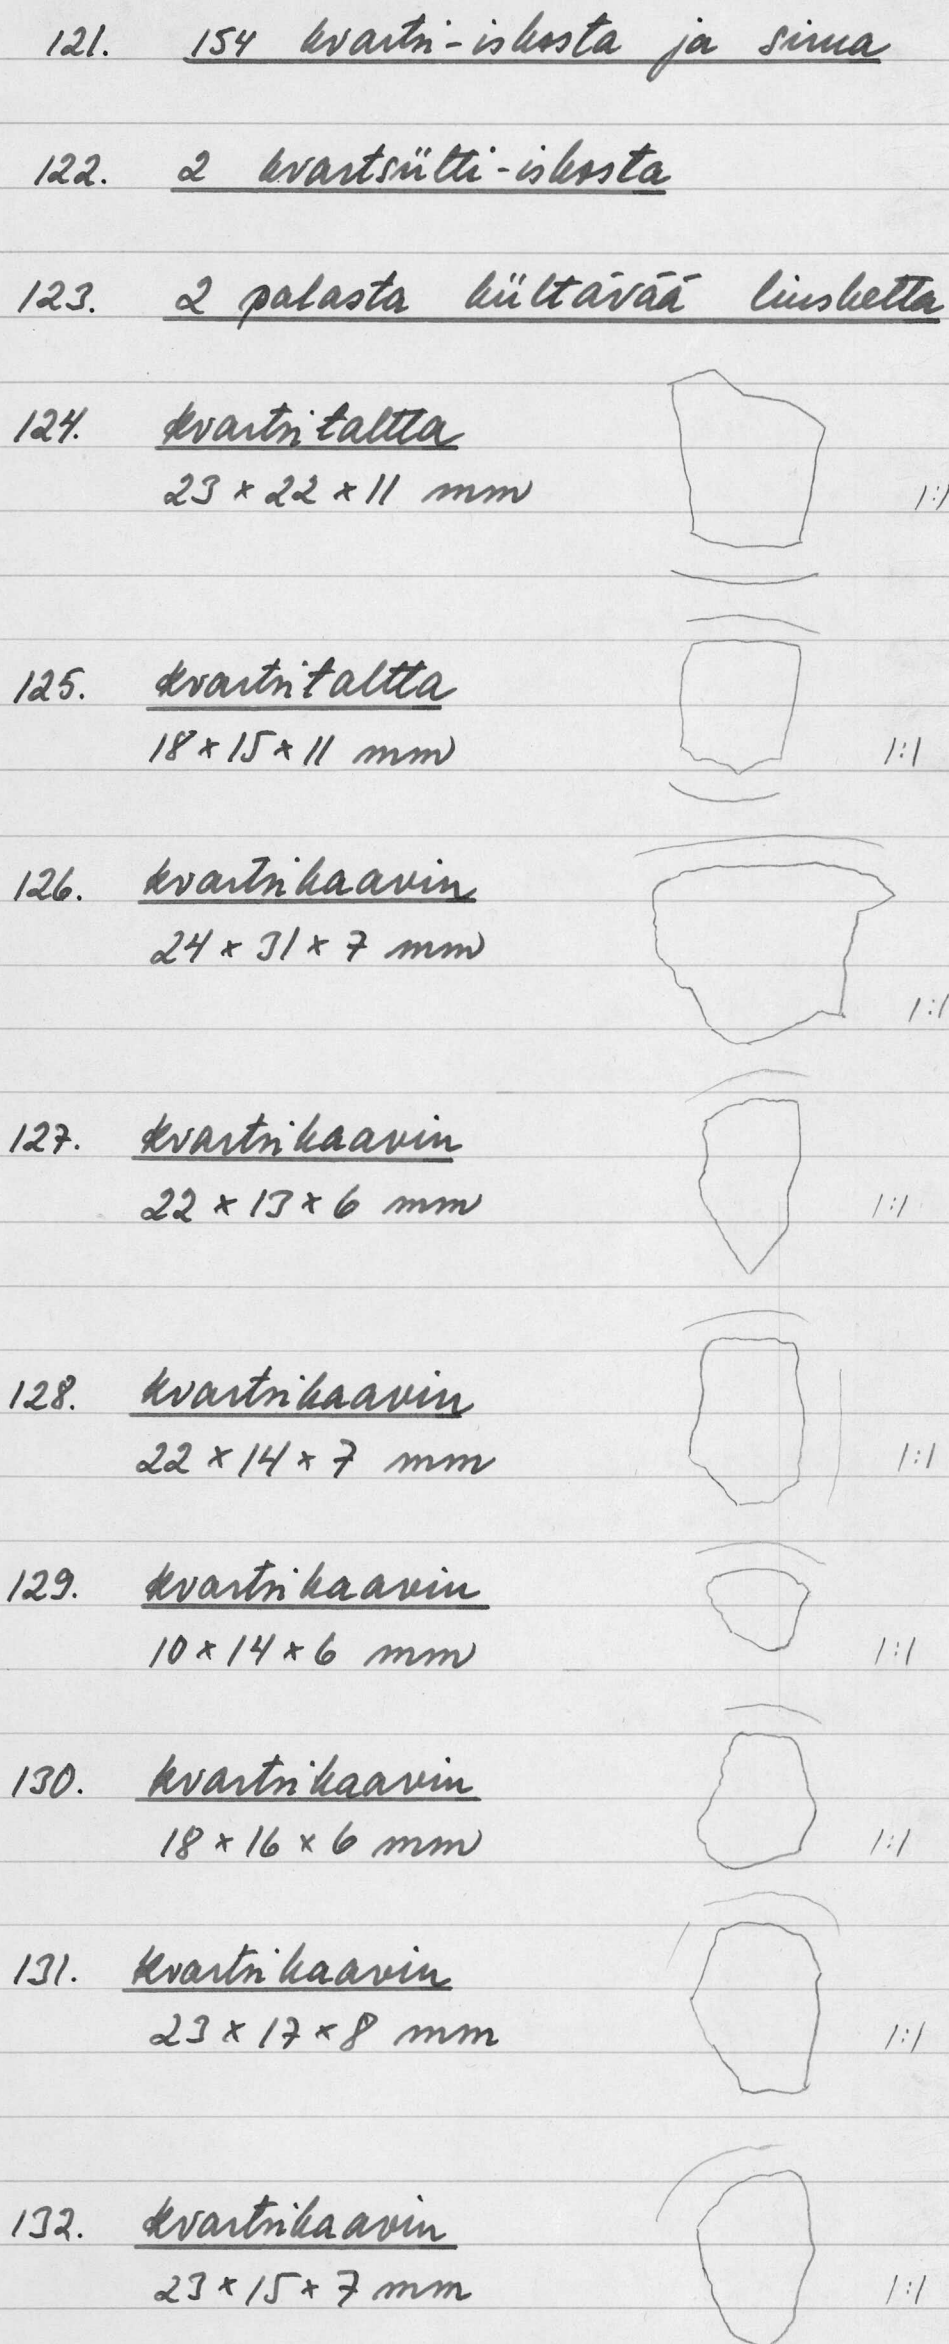 121. 154 kvartsi-iskosta ja sirua
122. 2 kvartsiitti-iskosta
123. 2 palasta kiiltävää liusketta
124. kvartsitaltta
23 × 22 × 11 mm
1:1
125. kvartsitaltta
18 × 15 × 11 mm
1:1
126. kvartsikaavin
24 × 31 × 7 mm
1:1
127. kvartsikaavin
22 × 13 × 6 mm
1:1
128. kvartsikaavin
22 × 14 × 7 mm
1:1
129. kvartsikaavin
10 × 14 × 6 mm
1:1
130. kvartsikaavin
18 × 16 × 6 mm
1:1
131. kvartsikaavin
23 × 17 × 8 mm
1:1
132. kvartsikaavin
23 × 15 × 7 mm
1:1